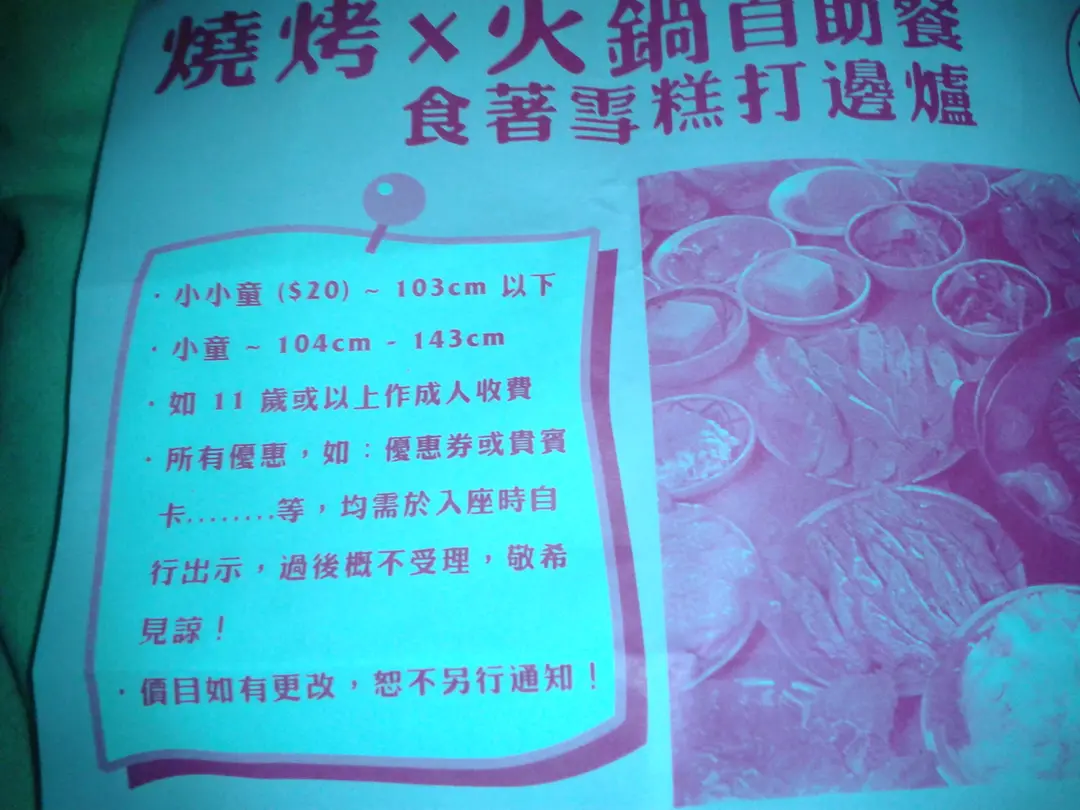 燒烤×火鍋自助餐
食著雪糕打邊爐
· 小小童 ($20) ~ 103cm 以下
· 小童 ~ 104cm - 143cm
· 如 11 歲或以上作成人收費
· 所有優惠，如：優惠券或貴賓
卡........等，均需於入座時自
行出示，過後概不受理，敬希
見諒！
· 價目如有更改，恕不另行通知！